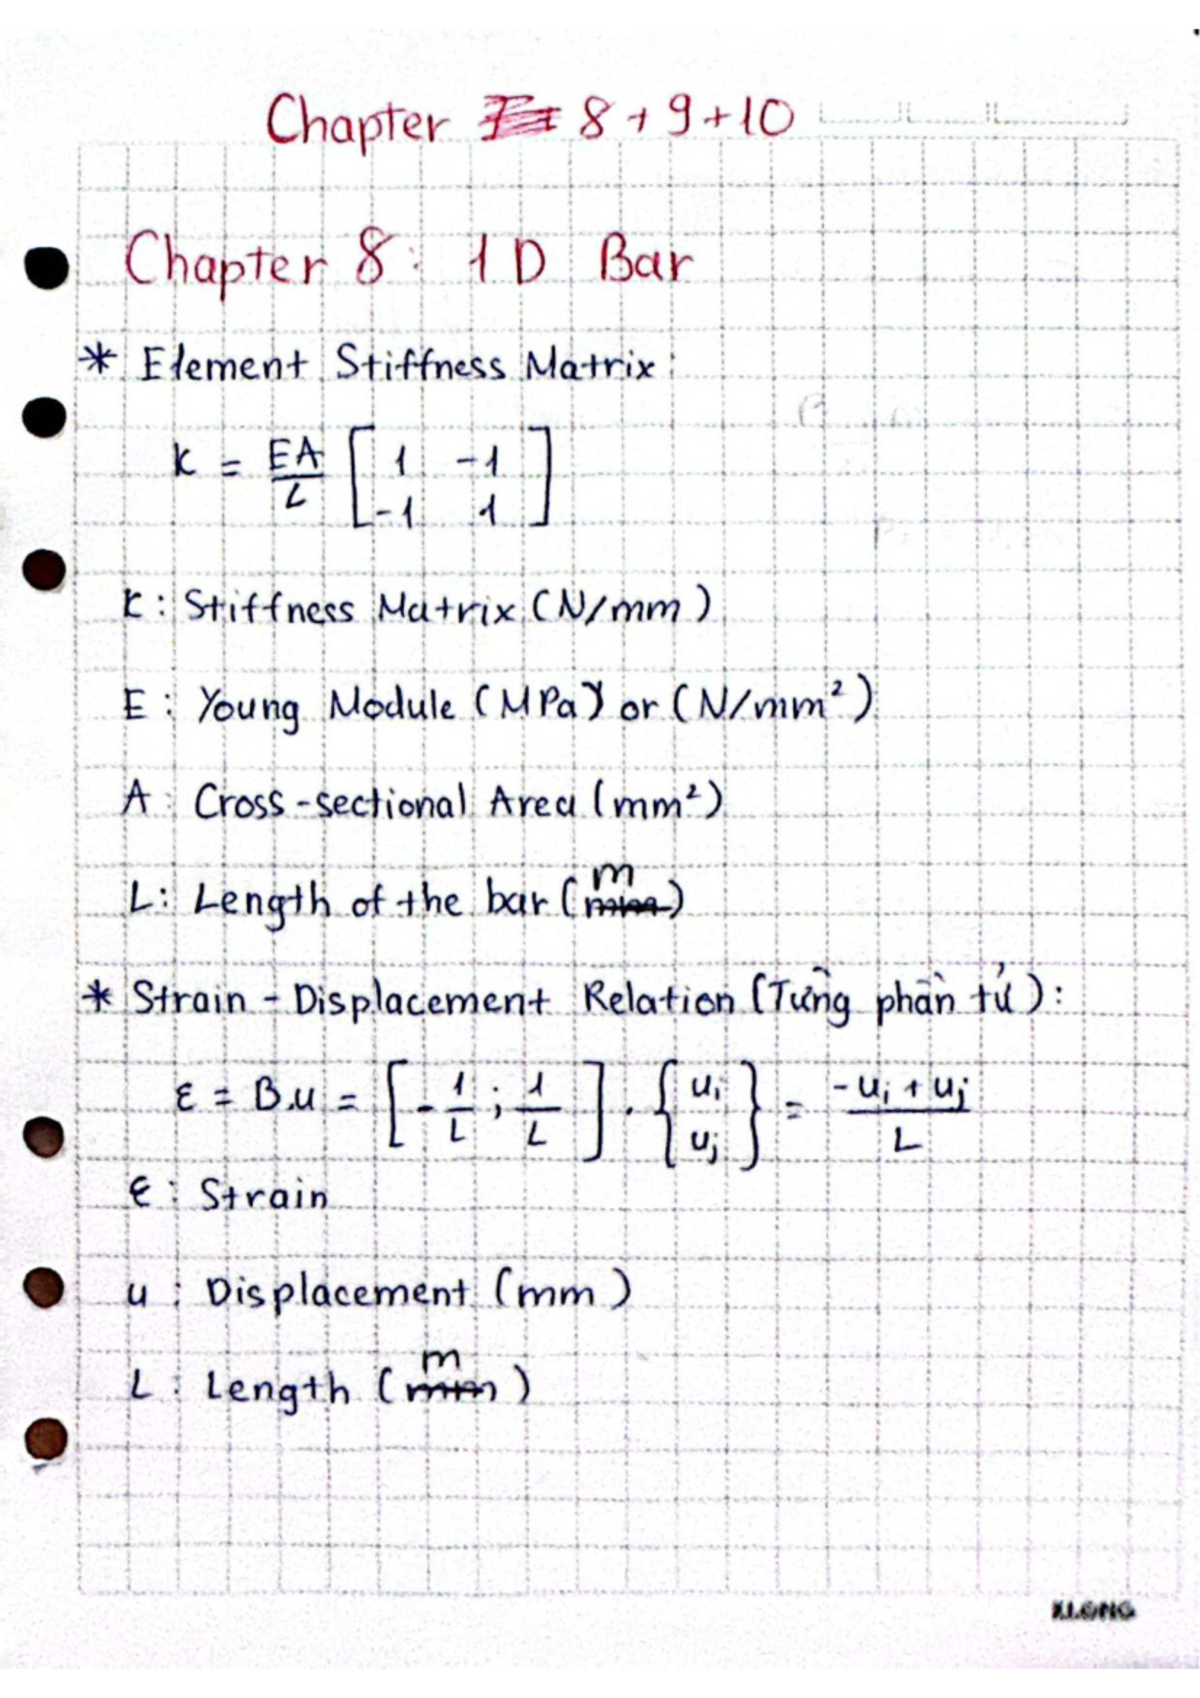 Chapter 8 + 9 + 10
Chapter 8: 1D Bar
* Element Stiffness Matrix:
k = EA/L [ 1 -1
-1 1 ]
k: Stiffness Matrix (N/mm)
E: Young Module (MPa) or (N/mm²)
A: Cross-sectional Area (mm²)
L: Length of the bar (m)
* Strain - Displacement Relation (Từng phần tử):
ε = B.u = [ -1/L ; 1/L ] . { ui uj } = (-ui + uj)/L
ε: Strain
u: Displacement (mm)
L: Length (m)
KLONG